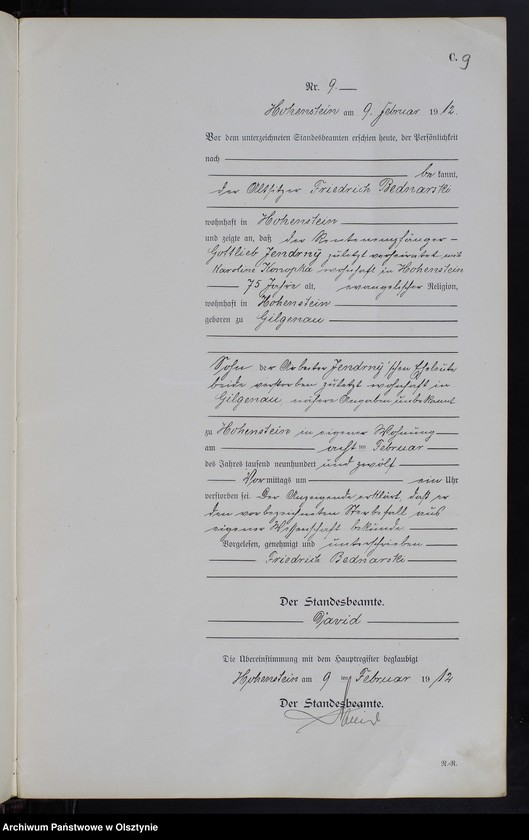 C. 9
Nr. 9.
Hohenstein am 9. Februar 1912.
Vor dem unterzeichneten Standesbeamten erschien heute, der Persönlichkeit
nach
be kannt,
der Altsitzer Friedrich Bednarski
wohnhaft in Hohenstein
und zeigte an, daß der Rentenempfänger
Gottlieb Jendrny zuletzt verheiratet mit
Karoline Konopka wohnhaft in Hohenstein
75 Jahre alt, evangelischer Religion,
wohnhaft in Hohenstein
geboren zu Gilgenau
Sohn der Arbeiter Jendrny'schen Eheleute
beide verstorben zuletzt wohnhaft in
Gilgenau, nähere Angaben unbekannt
zu Hohenstein in eigener Wohnung
am acht ten Februar
des Jahres tausend neunhundert und zwölf
Vor mittags um ein Uhr
verstorben sei. Der Anzeigende erklärt, daß er
den vorbezeichneten Sterbefall aus
eigener Wissenschaft bekunde
Vorgelesen, genehmigt und unterschrieben
Friedrich Bednarski
Der Standesbeamte.
David
Die Übereinstimmung mit dem Hauptregister beglaubigt
Hohenstein am 9 ten Februar 1912
Der Standesbeamte.
David
N.-R.
Archiwum Państwowe w Olsztynie